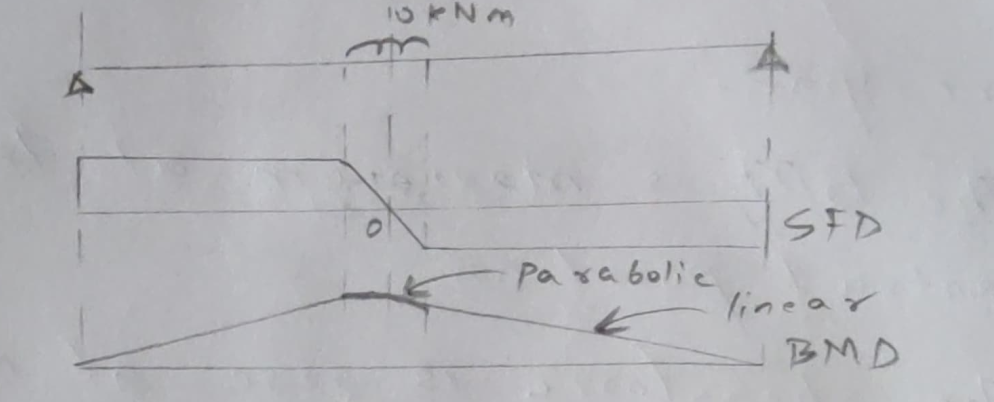 10 kNm
0
SFD
Parabolic
linear
BMD